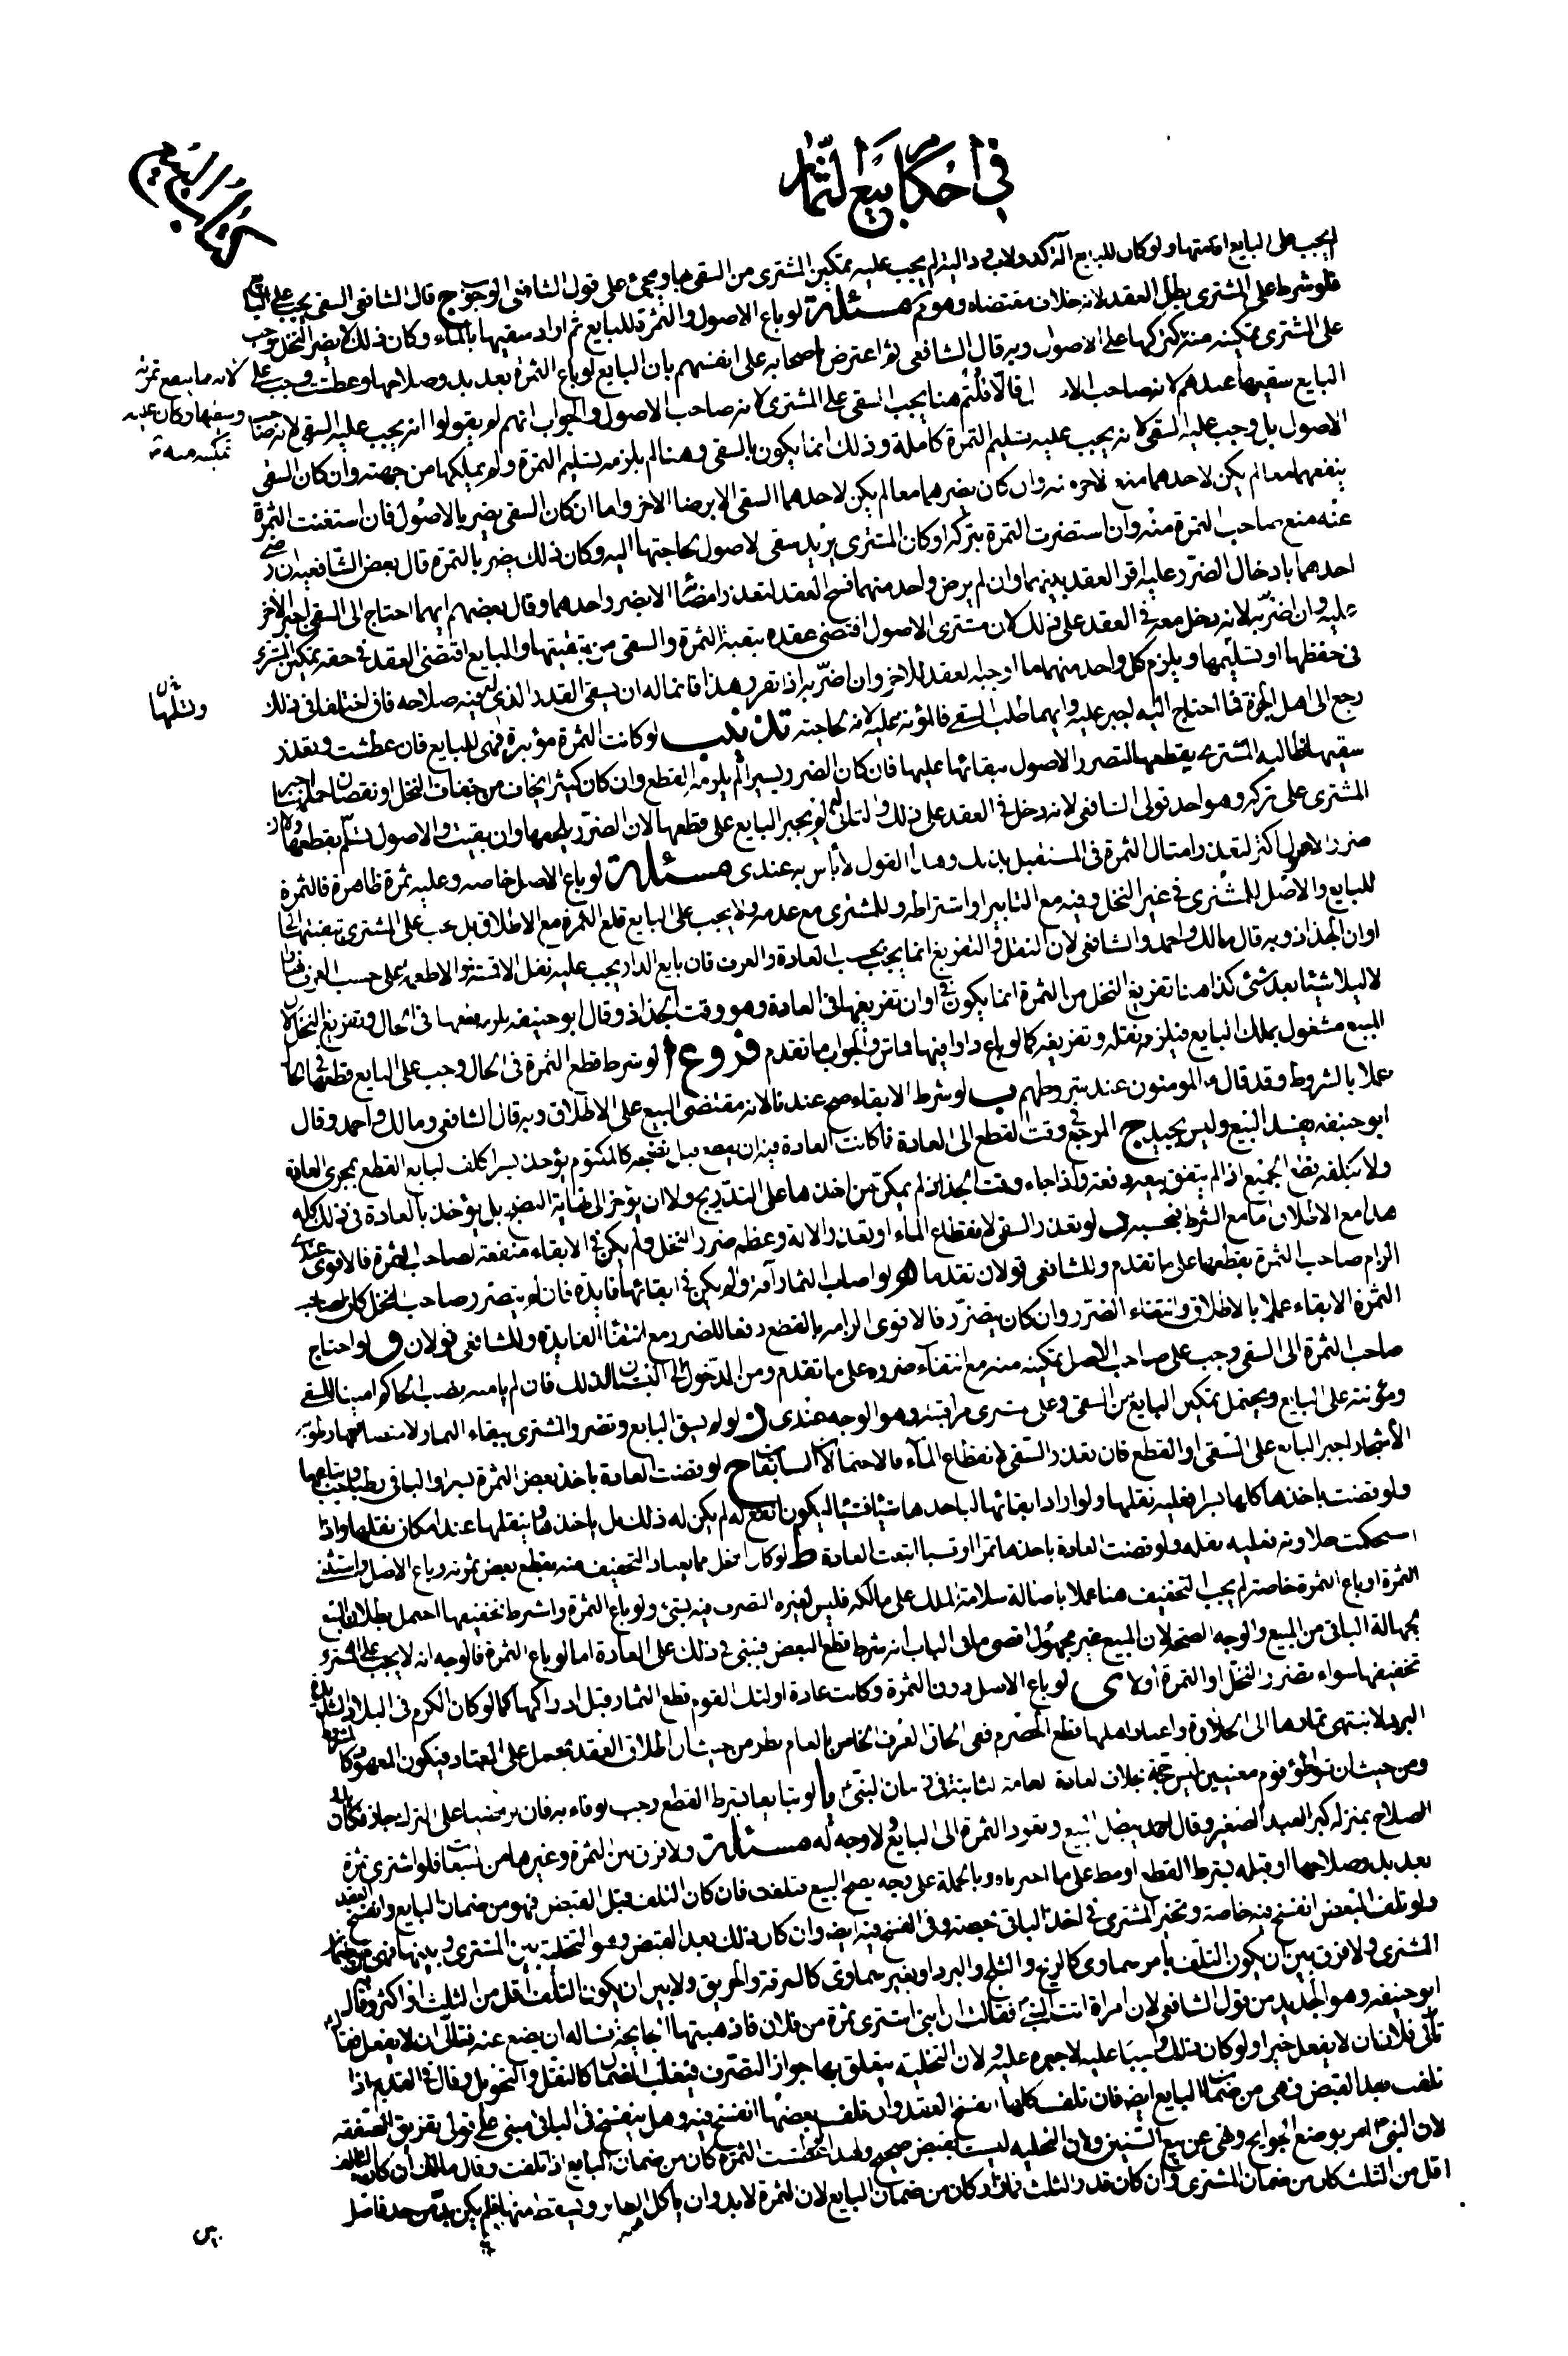 في احكام بيع الثمار
كتاب البيع
لم يجب على البايع اقامتها ولو كان للبايع آلة كدولاب ودالية لم يجب عليه تمكين المشتري من السقي بها ويجيء على قول الشافعي الوجوب ج قال الشافعي السقي يجب على البايع
فلو شرط على المشتري بطل العقد لانه خلاف مقتضاه وهو مسئلة لو باع الاصول والثمرة للبايع ثم اراد سقيها بالماء وكان ذلك لا يضر النخل وجب
على المشتري تمكينه منه كتركها على الاصول وبه قال الشافعي ثم اعترض اصحابه على انفسهم بان البايع لو باع الثمرة بعد بدو صلاحها وعطشت وجب على
البايع سقيها عندهم لانه صاحب الا قالا قلتم هنا يجب السقي على المشتري لانه صاحب الاصول والجواب انهم لم يقولوا انه يجب عليه السقي لانه صاحب
الاصول بل وجب عليه السقي لانه يجب عليه تسليم الثمرة كاملة وذلك انما يكون بالسقي وهنا لم يلزمه تسليم الثمرة ولم يملكها من جهته وان كان السقي
ينفعهما معا لم يكن لاحدهما منع الاخر منه وان كان يضرهما معا لم يكن لاحدهما السقي الا برضا الاخر واما ان كان السقي يضر بالاصول فان استغنت الثمرة
عنه منع صاحب الثمرة منه وان استضرت الثمرة بتركه او كان المشتري يريد سقي الاصول لحاجتها اليه وكان ذلك يضر بالثمرة قال بعض الشافعية ان رضي
احدهما بادخال الضرر عليه اقر العقد بينهما وان لم يرض واحد منهما فسخ العقد لتعذر امضائه الا بضرر احدهما وقال بعضهم ايهما احتاج الى السقي اجبر الاخر
عليه وان اضر به لانه دخل معه في العقد على ذلك لان مشتري الاصول اقتضى عقده تبقية الثمرة والسقي من تبقيتها والبايع اقتضى العقد في حقه تمكين المشتري
في حفظها او تسليمها ويلزم كل واحد منهما ما اوجبه العقد للاخر وان اضر به اذا تقرر هذا فانما له ان يسقي القدر الذي فيه صلاحه فان اختلفا في ذلك
رجع الى اهل الخبرة فما احتاج اليه اجبر عليه وايهما طلب السقي فالمؤنة عليه لانه لحاجته تذنيب لو كانت الثمرة مؤبرة فهي للبايع فان عطشت وتعذر
سقيها فطالبه المشتري بقطعها لتضرر الاصول ببقائها عليها فان كان الضرر يسيرا لم يلزمه القطع وان كان كثيرا يخاف من جفاف النخل او نقصان حملها اجبر
المشتري على تركه وهو احد قولي الشافعي لانه دخل في العقد على ذلك والثاني له يجبر البايع على قطعها لان الضرر يلحقها وان بقيت والاصول تسلم بقطعها ولان
ضرر الاصول اكثر لتعذر امثال الثمرة في المستقبل بذلك وهذا القول لا بأس به عندي مسئلة لو باع الاصل خاصة وعليه ثمرة ظاهرة فالثمرة
للبايع والاصل للمشتري في غير النخل وفيه مع التابير او اشتراطه وللمشتري مع عدمه ولا يجب على البايع قلع الثمرة مع الاطلاق بل يجب على المشتري تبقيتها الى
اوان الجذاذ وبه قال مالك واحمد والشافعي لان النقل والتفريغ انما يجب بحسب العادة والعرف فان بايع الدار يجب عليه نقل الاقمشة والاطعمة على حسب العرف نهارا
لا ليلا شيئا بعد شئ كذا هنا تفريغ النخل من الثمرة انما يكون في اوان تفريغها في العادة وهو وقت الجذاذ وقال ابو حنيفة يلزمه قطعها في الحال وتفريغ النخل لان
المبيع مشغول بملك البايع فيلزمه نقله وتفريغه كما لو باع دارا فيها قماش والجواب ما تقدم فروع ا لو شرط قطع الثمرة في الحال وجب على البايع قطعها في الحال
عملا بالشروط وقد قال المومنون عند شروطهم ب لو شرط الابقاء صح عندنا لانه مقتضى البيع على الاطلاق وبه قال الشافعي ومالك واحمد وقال
ابو حنيفة يفسد البيع وليس بجيد ج المرجع في وقت القطع الى العادة فما كانت العادة فيه ان يقطع قبل نضجه كالمكتوم يؤخذ بسرا كلف البايع القطع بمجرى العادة
ولا نكلفه قطع الجميع اذا لم يتفق نضجه دفعة واذا جاء وقت الجذاذ لم يمكن من اخذها على التدريج ولا ان يؤخر الى نهاية النضج بل يؤخذ بالعادة في ذلك كله
هذا مع الاطلاق اما مع الشرط فبحسبه د لو تعذر السقي لانقطاع الماء او تعذر الالة وعظم ضرر النخل ولم يكن في الابقاء منفعة لصاحب الثمرة فالاقوى عندي
الزام صاحب الثمرة بقطعها على ما تقدم وللشافعي قولان تقدما ه لو اصاب الثمار آفة ولم يكن في ابقائها فايدة فان لم يتضرر صاحب النخل كان لصاحب
الثمرة الابقاء عملا بالاطلاق وانتفاء الضرر وان كان يتضرر فالاقوى الزامه بالقطع دفعا للضرر مع انتفاء الفايدة وللشافعي قولان و لو احتاج
صاحب الثمرة الى السقي وجب على صاحب الاصل تمكينه منه مع انتفاء ضرره على ما تقدم ومن الدخول الى البستان لذلك فان لم يامنه نصب الحاكم امينا للسقي
ومؤنته على البايع ويحتمل تمكين البايع من السقي وعلى مشتري مراقبته وهو الوجه عندي ز لو لم يسق البايع وتضرر المشتري ببقاء الثمار لامتصاصها رطوبة
الأشجار اجبر البايع على السقي او القطع فان تعذر السقي لانقطاع الماء فالاحتمالان السابقان ح لو قضت العادة باخذ بعض الثمرة بسرا والباقي رطبا وجب
ولو قضت باخذها كلها بسرا فعليه نقلها ولو اراد ابقائها لياخذها شيئا فشيئا ليكون انفع له لم يكن له ذلك بل ياخذها وينقلها عند امكان نقلها واذا
استحكمت حلاوته فعليه نقله ولو قضت العادة باخذها تمرا او قسبا اتبعت العادة ط لو كان نخل مما يعتاد التخفيف منه بقطع بعض ثمرته وباع الاصل واستثنى
الثمرة او باع الثمرة خاصة لم يجب التخفيف هنا عملا باصالة سلامة الملك على مالكه فليس لغيره التصرف فيه بشئ ولو باع الثمرة واشترط تخفيفها احتمل بطلان البيع
بجهالة الباقي من المبيع والوجه الصحة لان المبيع غير مجهول اقصى ما في الباب انه شرط قطع البعض فيبنى في ذلك على العادة اما لو باع الثمرة فالوجه انه لا يجب على المشتري
تخفيفها سواء تضرر النخل او الثمرة او لا ى لو باع الاصل دون الثمرة وكانت عادة اولئك القوم قطع الثمار قبل ادراكها كما لو كان الكرم في البلاد الشديدة
البرد لا ينتهي ثمارها الى الحلاوة واعتاد اهلها قطع الحصرم ففي الحاق العرف الخاص بالعام نظر من حيث ان اطلاق العقد يحمل على المعتاد فيكون المعهود كالمشروط
ومن حيث ان تواطؤ قوم معينين ليس حجة بخلاف العادة العامة الثابتة في زمان النبي يا لو تبايعا بشرط القطع وجب الوفاء به فان تراضيا على الترك جاز فكان بدو
الصلاح بمنزلة كبر العبد الصغير وقال احمد يبطل البيع وتعود الثمرة الى البايع ولا وجه له مسئلة ولا فرق بين الثمرة وغيرها من المبيعات فلو اشترى ثمرة
بعد بدو صلاحها او قبله بشرط القطع او مطلقا على ما اخترناه وبالجملة على وجه يصح البيع فتلفت فان كان التلف قبل القبض فهو من ضمان البايع وانفسخ العقد
ولو تلف البعض انفسخ فيه خاصة وتخير المشتري في اخذ الباقي بحصته وفي الفسخ فيه ايضا وان كان ذلك بعد القبض وهو التخلية بين المشتري وبينها فهي من ضمان
المشتري ولا فرق بين ان يكون التلف بامر سماوي كالريح والثلج والبرد او بغير سماوي كالسرقة والحريق ولا بين ان يكون التلف اقل من الثلث او اكثر وبه قال
ابو حنيفة وهو الجديد من قول الشافعي لان امراة اتت النبي فقالت ان ابني اشترى ثمرة من فلان فاذهبتها الجايحة فساله ان يضع عنه فتالى ان لا يفعل فقال
تالى فلان ان لا يفعل خيرا ولو كان ذلك واجبا عليه لاجبره عليه ولان التخلية يتعلق بها جواز التصرف فيتعلق بها الضمان كالنقل والتحويل وقال في القديم اذا
تلفت بعد القبض فهي من ضمان البايع ايضا فان تلف كلها انفسخ العقد وان تلف بعضها انفسخ فيه وهل ينفسخ في الباقي مبني على قولي تفريق الصفقة
لان النبي امر بوضع الجوايح ونهى عن بيع السنين ولان التخلية ليست بقبض صحيح ولهذا لو عطشت الثمرة كان من ضمان البايع اذا تلفت وقال مالك ان كان التالف
اقل من الثلث كان من ضمان المشتري وان كان قدر الثلث فما زاد كان من ضمان البايع لان الثمرة لا بد وان ياكل الطاير ويسقط منها فلم يكن بد من حد فاصل
لانه مما يبيع ثمرته
وسقيها وكان عليه
تمكينه منه